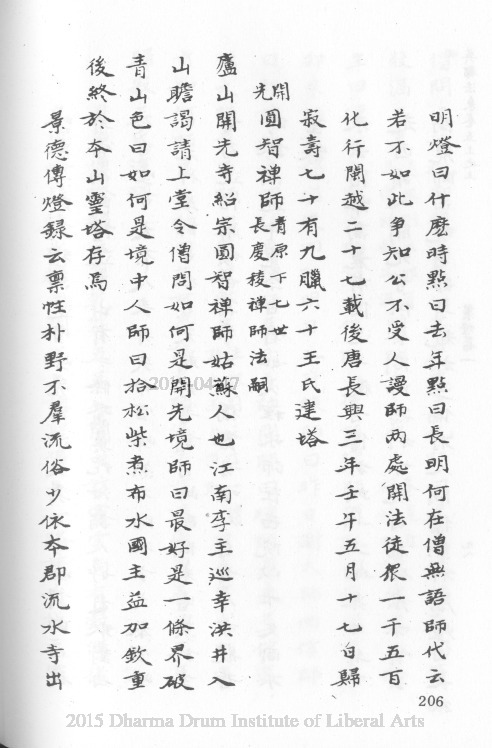 明燈曰什麽時點曰去年點曰長明何在僧無語師代云
若不如此爭知公不受人謾師兩處開法徒衆一千五百
化行閩越二十七載後唐長興三年壬午五月十七日歸
寂壽七十有九臘六十王氏建塔
開先圓智禪師青原下七世長慶稜禪師法嗣
廬山開先寺紹宗圓智禪師姑蘇人也江南李主巡幸洪井入
山瞻謁請上堂令僧問如何是開先境師曰最好是一條界破
青山色曰如何是境中人師曰拾松柴煮布水國主益加欽重
後終於本山靈塔存焉
景德傳燈錄云禀性朴野不羣流俗少依本郡流水寺出
206
2015 Dharma Drum Institute of Liberal Arts